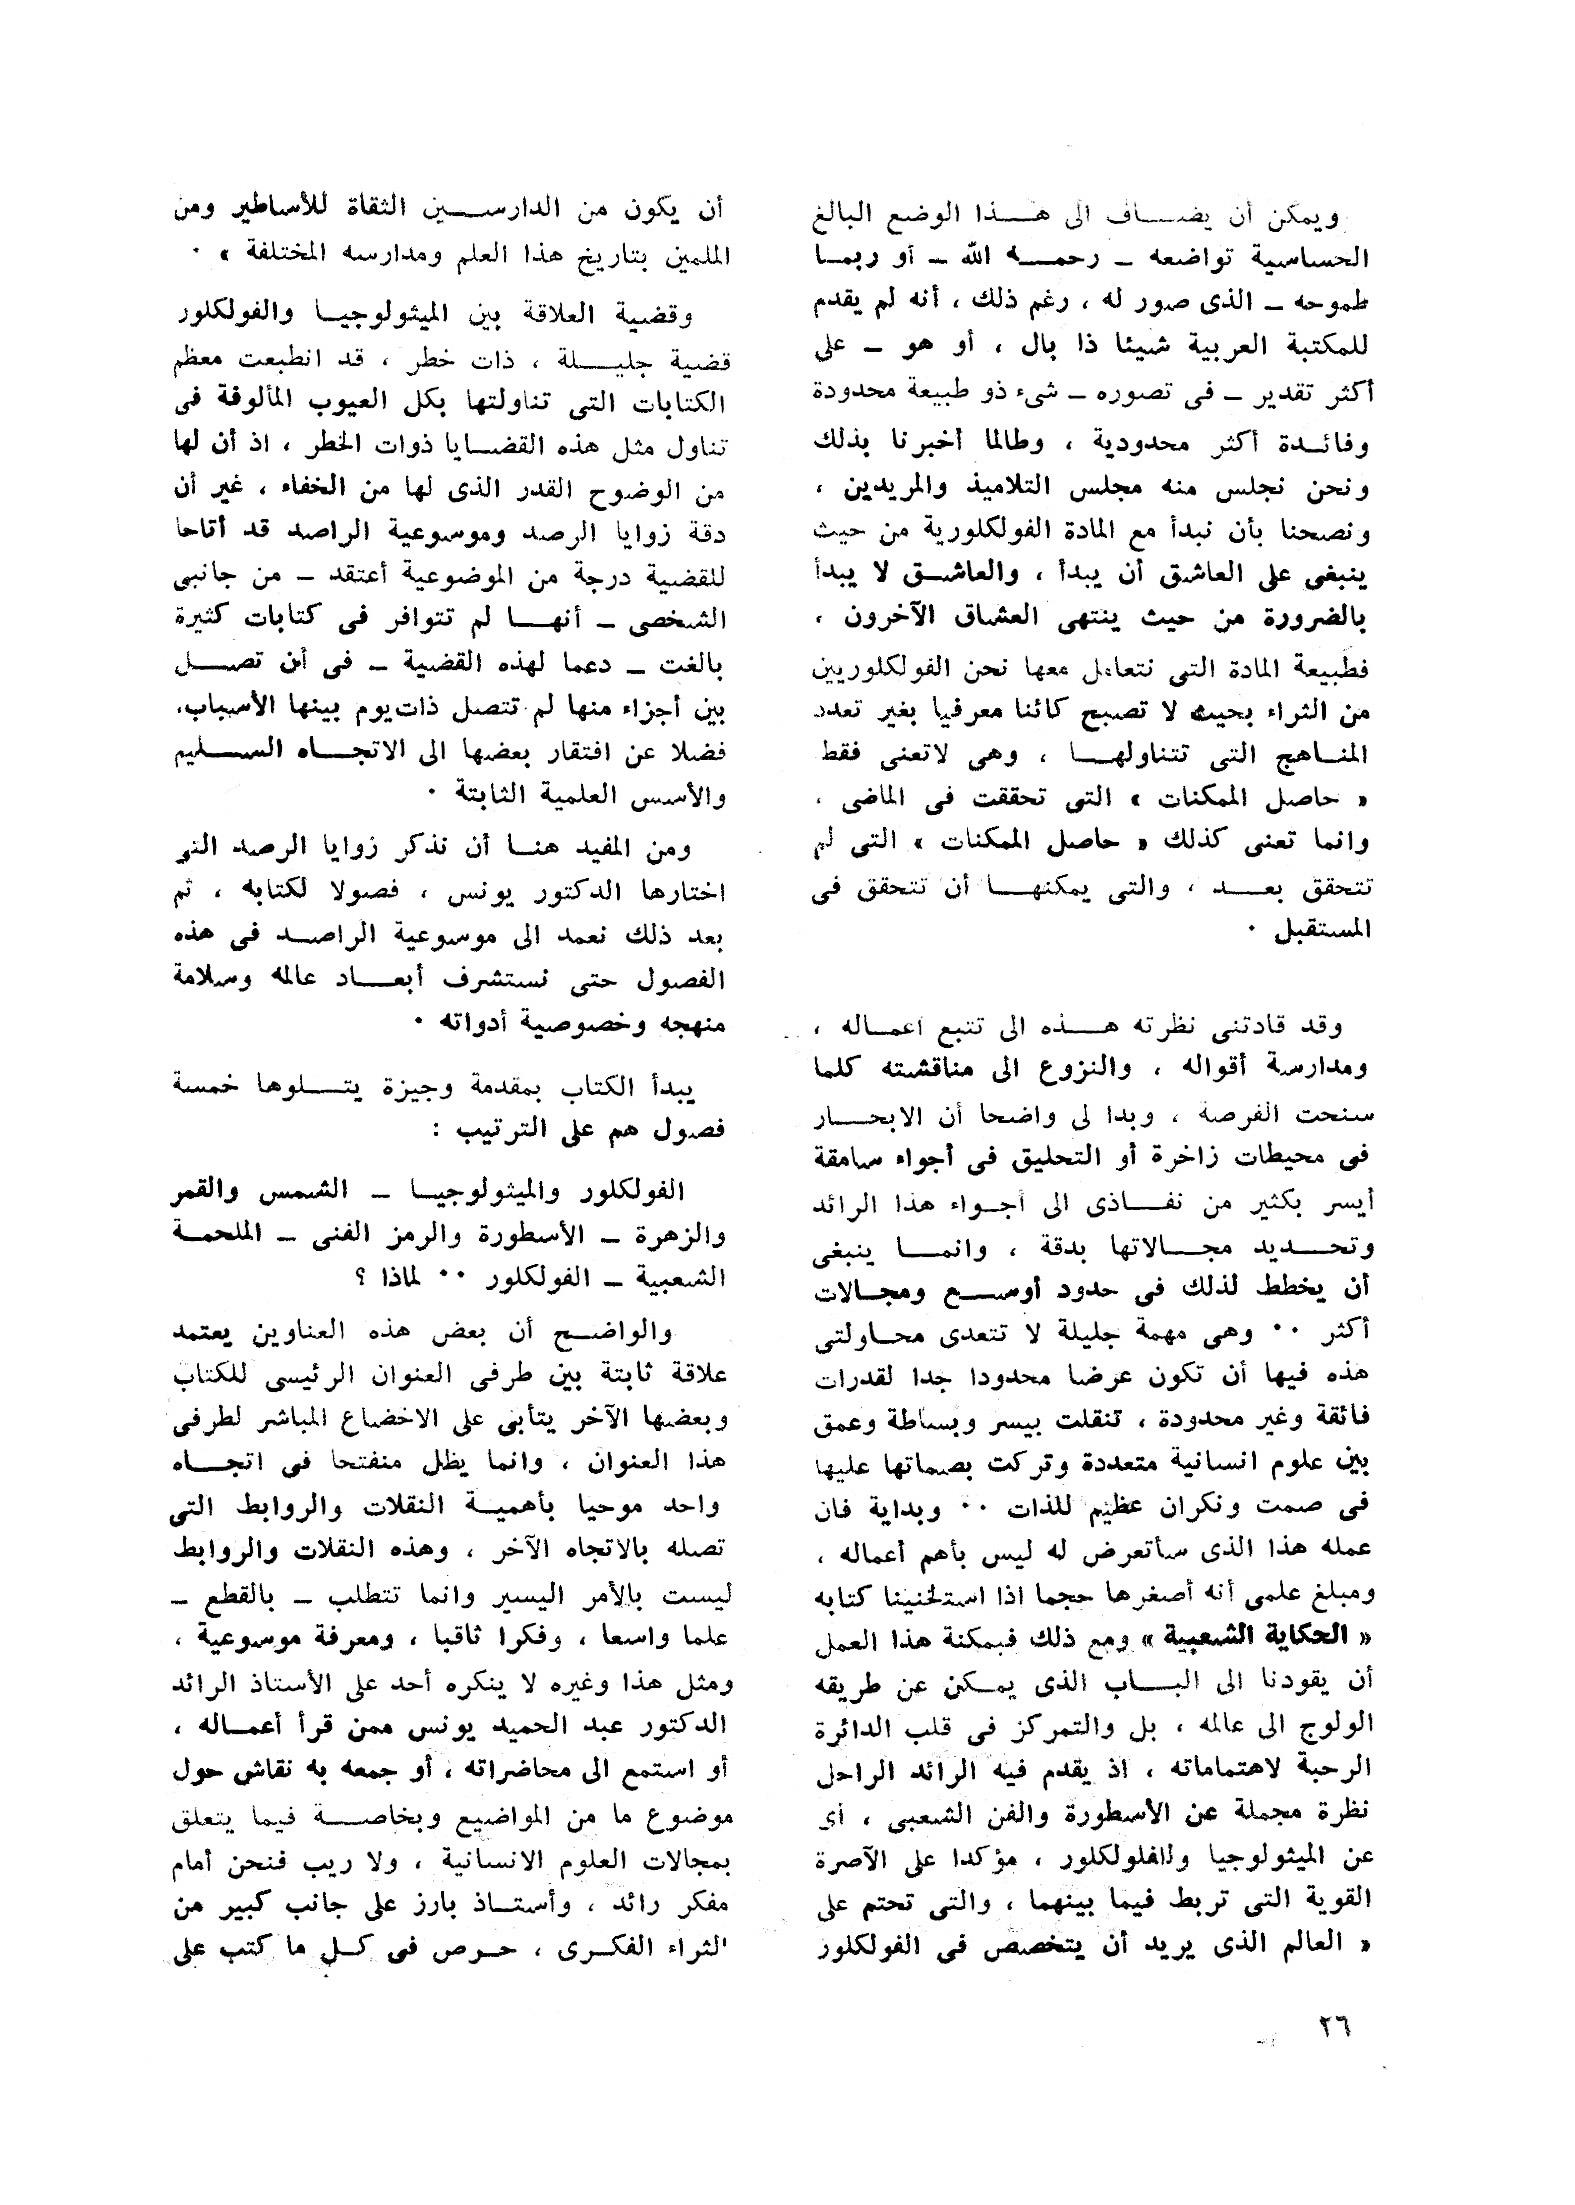 ويمكن أن يضاف الى هذا الوضع البالغ
الحساسية تواضعه ـ رحمه الله ـ أو ربما
طموحه ـ الذى صور له ، رغم ذلك ، أنه لم يقدم
للمكتبة العربية شيئا ذا بال ، أو هو ـ على
أكثر تقدير ـ فى تصوره ـ شىء ذو طبيعة محدودة
وفائدة أكثر محدودية ، وطالما أخبرنا بذلك
ونحن نجلس منه مجلس التلاميذ والمريدين ،
ونصحنا بأن نبدأ مع المادة الفولكلورية من حيث
ينبغى على العاشق أن يبدأ ، والعاشق لا يبدأ
بالضرورة من حيث ينتهى العشاق الآخرون ،
فطبيعة المادة التى نتعامل معها نحن الفولكلوريين
من الثراء بحيث لا تصبح كائنا معرفيا بغير تعدد
المناهج التى تتناولها ، وهى لاتعنى فقط
« حاصل الممكنات » التى تحققت فى الماضى ،
وانما تعنى كذلك « حاصل الممكنات » التى لم
تتحقق بعد ، والتى يمكنها أن تتحقق فى
المستقبل ٠
وقد قادتنى نظرته هذه الى تتبع أعماله ،
ومدارسة أقواله ، والنزوع الى مناقشته كلما
سنحت الفرصة ، وبدا لى واضحا أن الابحار
فى محيطات زاخرة أو التحليق فى أجواء سامقة
أيسر بكثير من نفاذى الى أجواء هذا الرائد
وتحديد مجالاتها بدقة ، وانما ينبغى
أن يخطط لذلك فى حدود أوسع ومجالات
أكثر ٠٠ وهى مهمة جليلة لا تتعدى محاولتى
هذه فيها أن تكون عرضا محدودا جدا لقدرات
فائقة وغير محدودة ، تنقلت بيسر وبساطة وعمق
بين علوم انسانية متعددة وتركت بصماتها عليها
فى صمت ونكران عظيم للذات ٠٠ وبداية فان
عمله هذا الذى سأتعرض له ليس بأهم أعماله ،
ومبلغ علمى أنه أصغرها حجما اذا استثنينا كتابه
« الحكاية الشعبية » ومع ذلك فبمكنة هذا العمل
أن يقودنا الى الباب الذى يمكن عن طريقه
الولوج الى عالمه ، بل والتمركز فى قلب الدائرة
الرحبة لاهتماماته ، اذ يقدم فيه الرائد الراحل
نظرة مجملة عن الأسطورة والفن الشعبى ، أى
عن الميثولوجيا والفلولكلور ، مؤكدا على الآصرة
القوية التى تربط فيما بينهما ، والتى تحتم على
« العالم الذى يريد أن يتخصص فى الفولكلور
أن يكون من الدارسين الثقاة للأساطير ومن
الملمين بتاريخ هذا العلم ومدارسه المختلفة » ٠
وقضية العلاقة بين الميثولوجيا والفولكلور
قضية جليلة ، ذات خطر ، قد انطبعت معظم
الكتابات التى تناولتها بكل العيوب المألوفة فى
تناول مثل هذه القضايا ذوات الخطر ، اذ أن لها
من الوضوح القدر الذى لها من الخفاء ، غير أن
دقة زوايا الرصد وموسوعية الراصد قد أتاحا
للقضية درجة من الموضوعية أعتقد ـ من جانبى
الشخصى ـ أنها لم تتوافر فى كتابات كثيرة
بالغت ـ دعما لهذه القضية ـ فى أن تصل
بين أجزاء منها لم تتصل ذات يوم بينها الأسباب،
فضلا عن افتقار بعضها الى الاتجاه السليم
والأسس العلمية الثابتة ٠
ومن المفيد هنا أن نذكر زوايا الرصد التى
اختارها الدكتور يونس ، فصولا لكتابه ، ثم
بعد ذلك نعمد الى موسوعية الراصد فى هذه
الفصول حتى نستشرف أبعاد عالمه وسلامة
منهجه وخصوصية أدواته ٠
يبدأ الكتاب بمقدمة وجيزة يتلوها خمسة
فصول هم على الترتيب :
الفولكلور والميثولوجيا ـ الشمس والقمر
والزهرة ـ الأسطورة والرمز الفنى ـ الملحمة
الشعبية ـ الفولكلور ٠٠ لماذا ؟
والواضح أن بعض هذه العناوين يعتمد
علاقة ثابتة بين طرفى العنوان الرئيسى للكتاب
وبعضها الآخر يتأبى على الاخضاع المباشر لطرفى
هذا العنوان ، وانما يظل منفتحا فى اتجاه
واحد موحيا بأهمية النقلات والروابط التى
تصله بالاتجاه الآخر ، وهذه النقلات والروابط
ليست بالأمر اليسير وانما تتطلب ـ بالقطع ـ
علما واسعا ، وفكرا ثاقبا ، ومعرفة موسوعية ،
ومثل هذا وغيره لا ينكره أحد على الأستاذ الرائد
الدكتور عبد الحميد يونس ممن قرأ أعماله ،
أو استمع الى محاضراته ، أو جمعه به نقاش حول
موضوع ما من المواضيع وبخاصة فيما يتعلق
بمجالات العلوم الانسانية ، ولا ريب فنحن أمام
مفكر رائد ، وأستاذ بارز على جانب كبير من
الثراء الفكرى ، حرص فى كل ما كتب على
٢٦